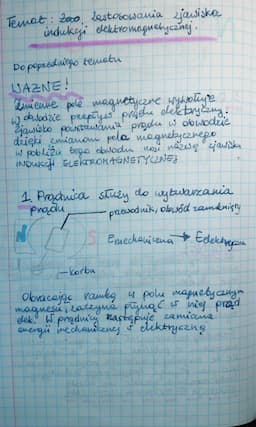 Temat: Zasto, Zastosowania zjawiska
indukcji elektromagnetycznej.
Do poprzedniego tematu
WAŻNE!
Zmienne pole magnetyczne wywołuje
w obwodzie przepływ prądu elektrycznego
zjawisko powstawania prądu w obwodzie
dzięki zmianom pola magnetycznego
w pobliżu tego obwodu nosi nazwę zjawiska
INDUKCJI ELEKTROMAGNETYCZNEJ
1. Prądnica służy do wytwarzania
prądu
przewodnik, obwód zamknięty
N
S
Emechaniczna → Eelektryczna
korba
Obracając ramkę w polu magnetycznym
magnesu, zaczyna płynąć w niej prąd
elek. W prądnicy następuje zamiana
energii mechanicznej w elektryczną